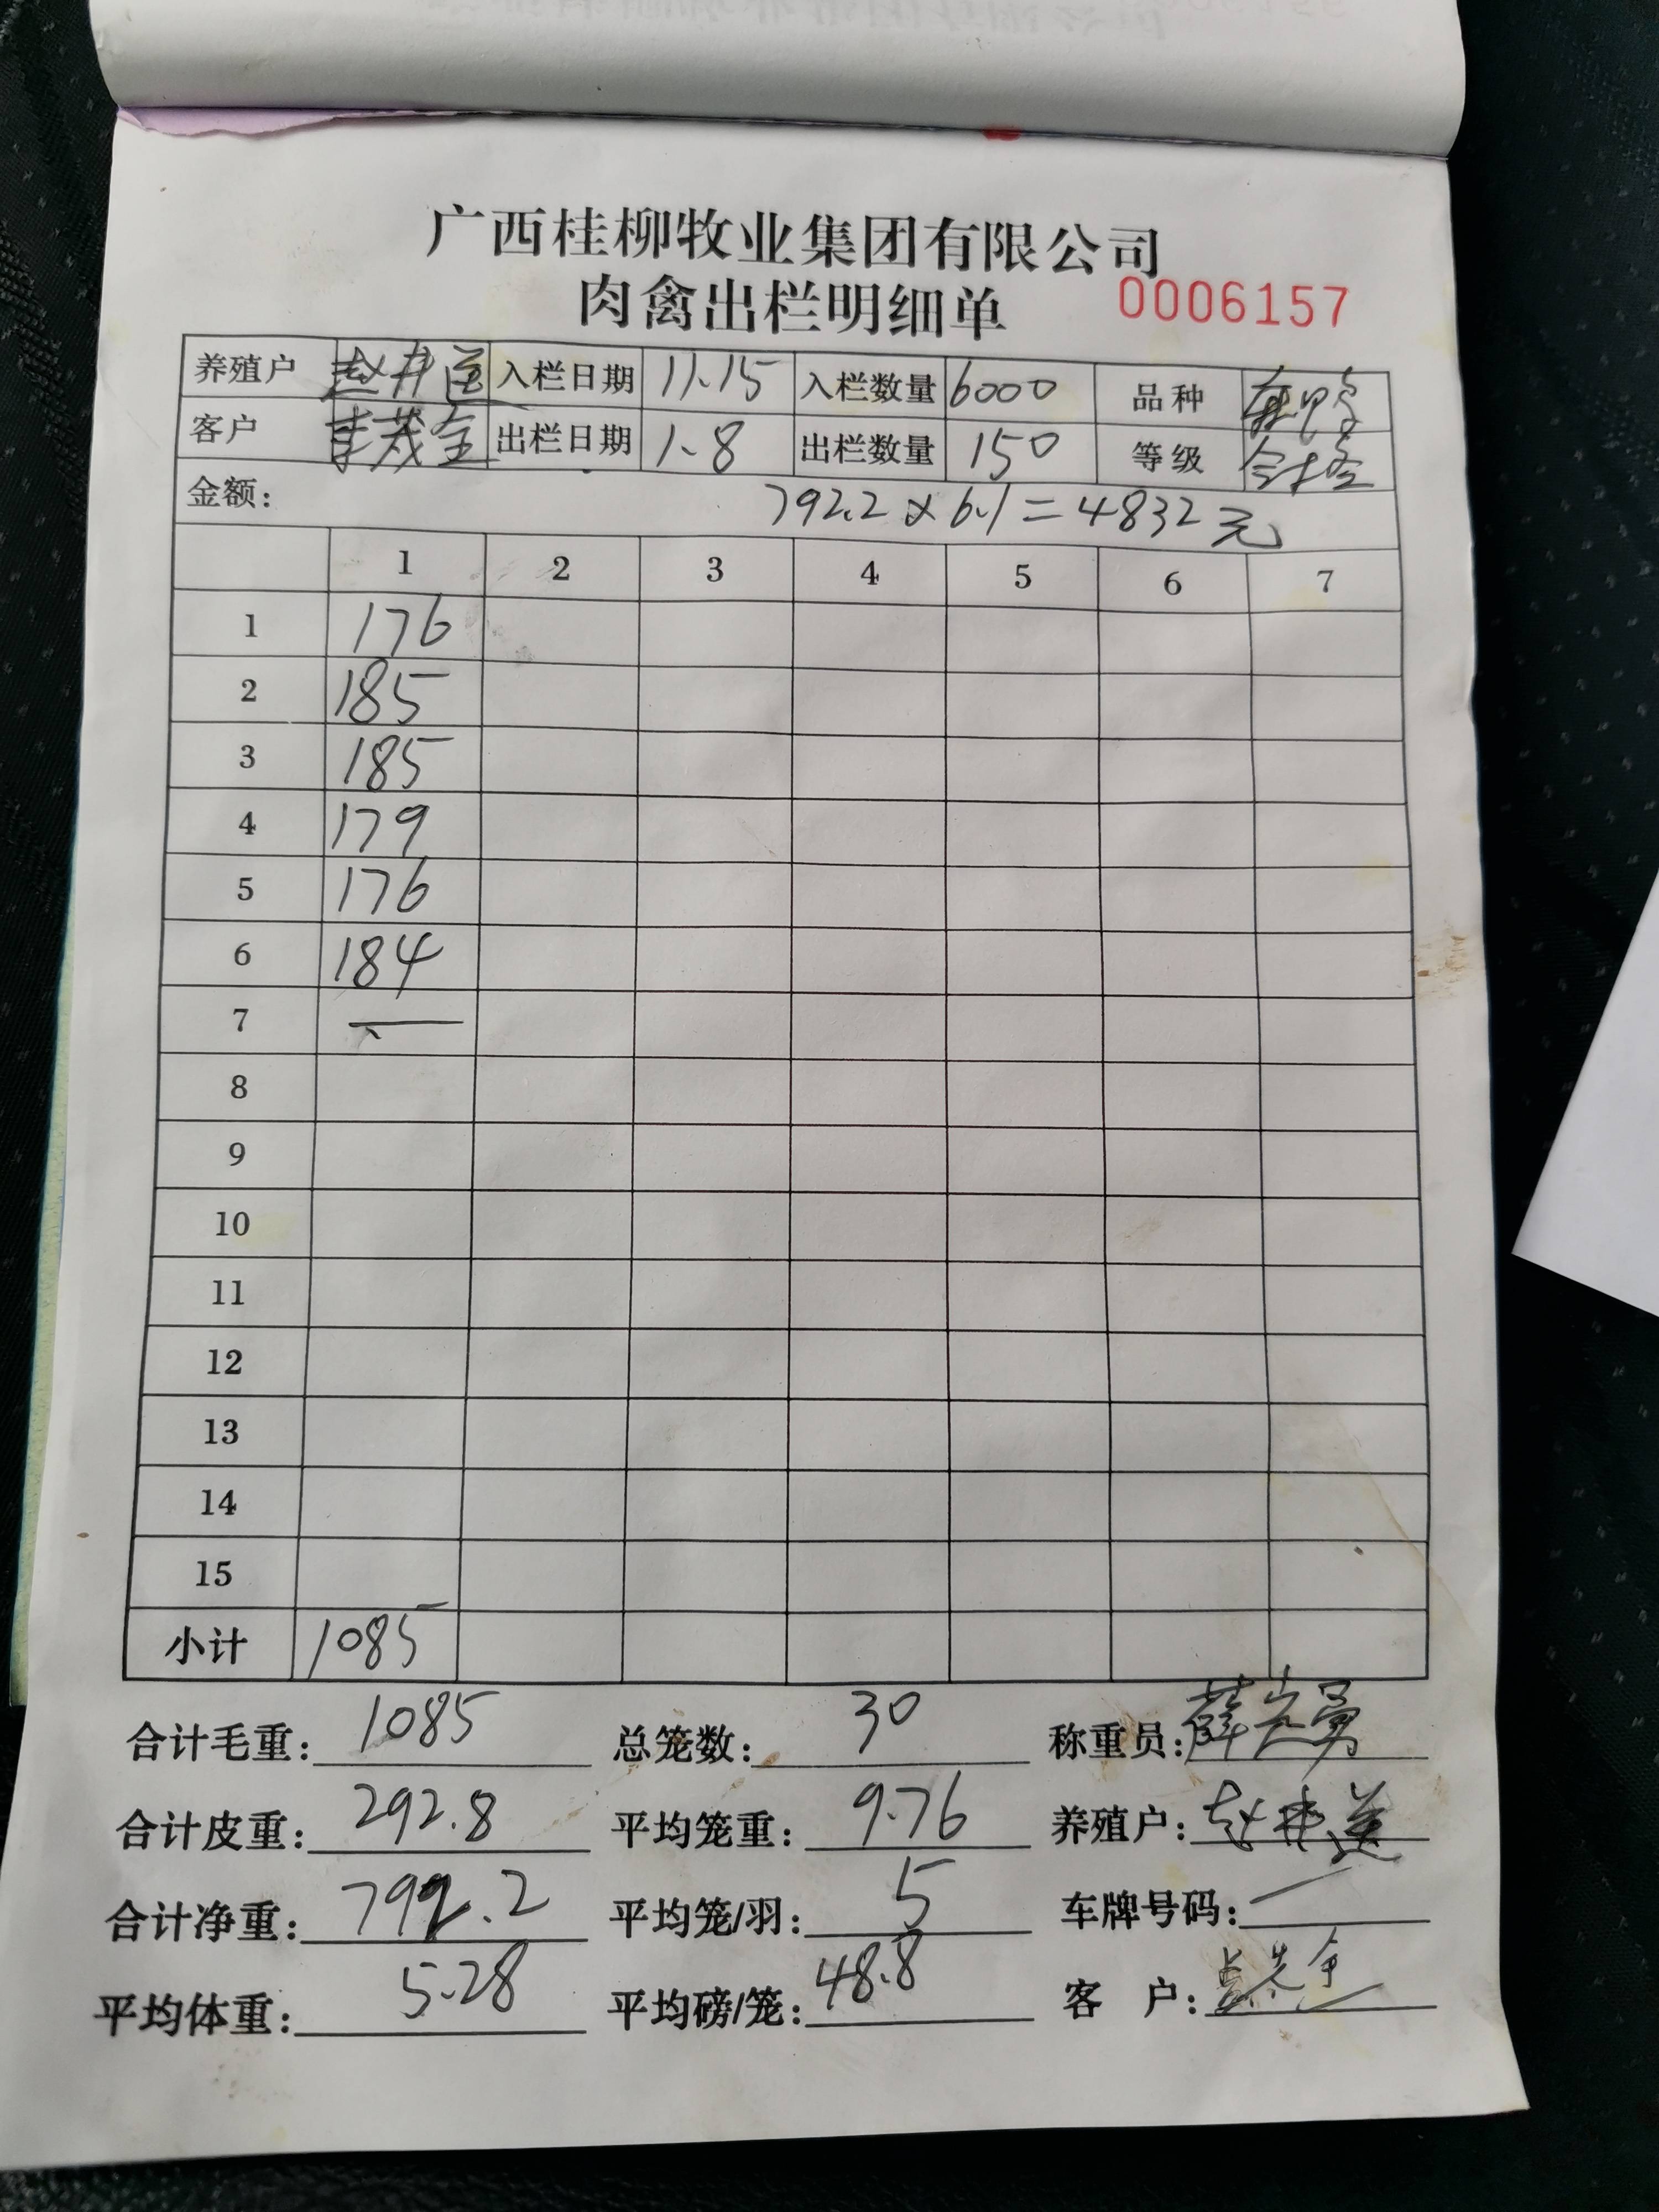 广西桂柳牧业集团有限公司
肉禽出栏明细单 0006157
养殖户 赵 入栏日期 11.15 入栏数量 6000 品种
客户 李茂全 出栏日期 1.8 出栏数量 150 等级 合格
金额: 792.2×6.1=4832元
1 2 3 4 5 6 7
1 176
2 185
3 185
4 179
5 176
6 184
7 —
8
9
10
11
12
13
14
15
小计 1085
合计毛重: 1085 总笼数: 30 称重员: 薛
合计皮重: 292.8 平均笼重: 9.76 养殖户: 赵
合计净重: 792.2 平均笼/羽: 5 车牌号码:
平均体重: 5.28 平均磅/笼: 48.8 客 户: